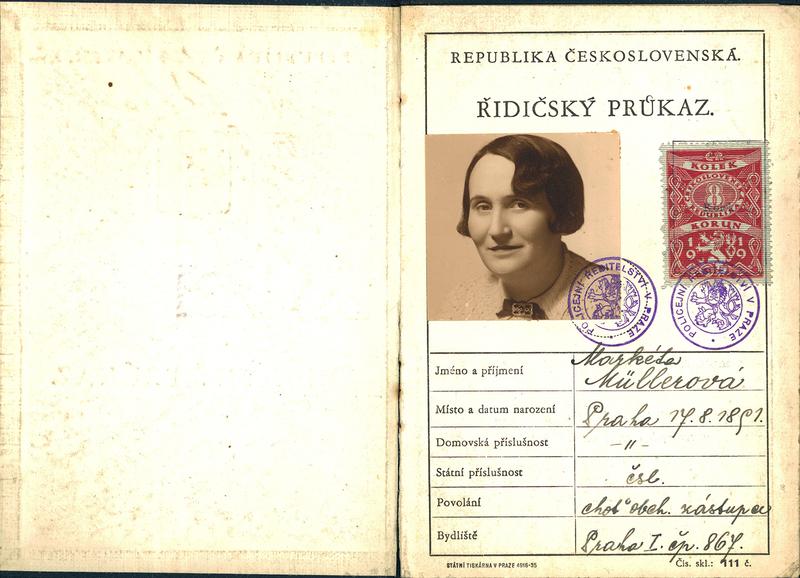 REPUBLIKA ČESKOSLOVENSKÁ.
ŘIDIČSKÝ PRŮKAZ.
KOLEK
ČESKOSLOVENSKÁ
REPUBLIKA
8
KORUN
1919
POLICEJNÍ ŘEDITELSTVÍ V PRAZE
POLICEJNÍ ŘEDITELSTVÍ V PRAZE
Jméno a příjmení Markéta
Müllerová
Místo a datum narození Praha 17.8.1891.
Domovská příslušnost -„-
Státní příslušnost čsl.
Povolání choť obch. zástupce
Bydliště Praha I. čp. 867.
STÁTNÍ TISKÁRNA V PRAZE 4916-35
Čís. skl.: 111 č.